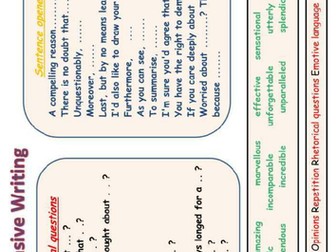 sive Writing
al questions
. . . ?
at . . ?
ought about . . ?
. . ?
ys longed for a . . ?
Sentence opene
A compelling reason. . . . .
There is no doubt that. . . .
Unquestionably, ......
Moreover, ......
Last, but by no means leas
I'd also like to draw your
Furthermore, ....
As you can see, .....
To summarise, ......
I'm sure you'd agree that
You have the right to dem
If you care deeply about
Worried about .....? Th
because ......
mazing marvellous effective sensational
ic incomparable unforgettable utterly
endous incredible unparalleled splendi
Opinions Repetition Rhetorical questions Emotive language